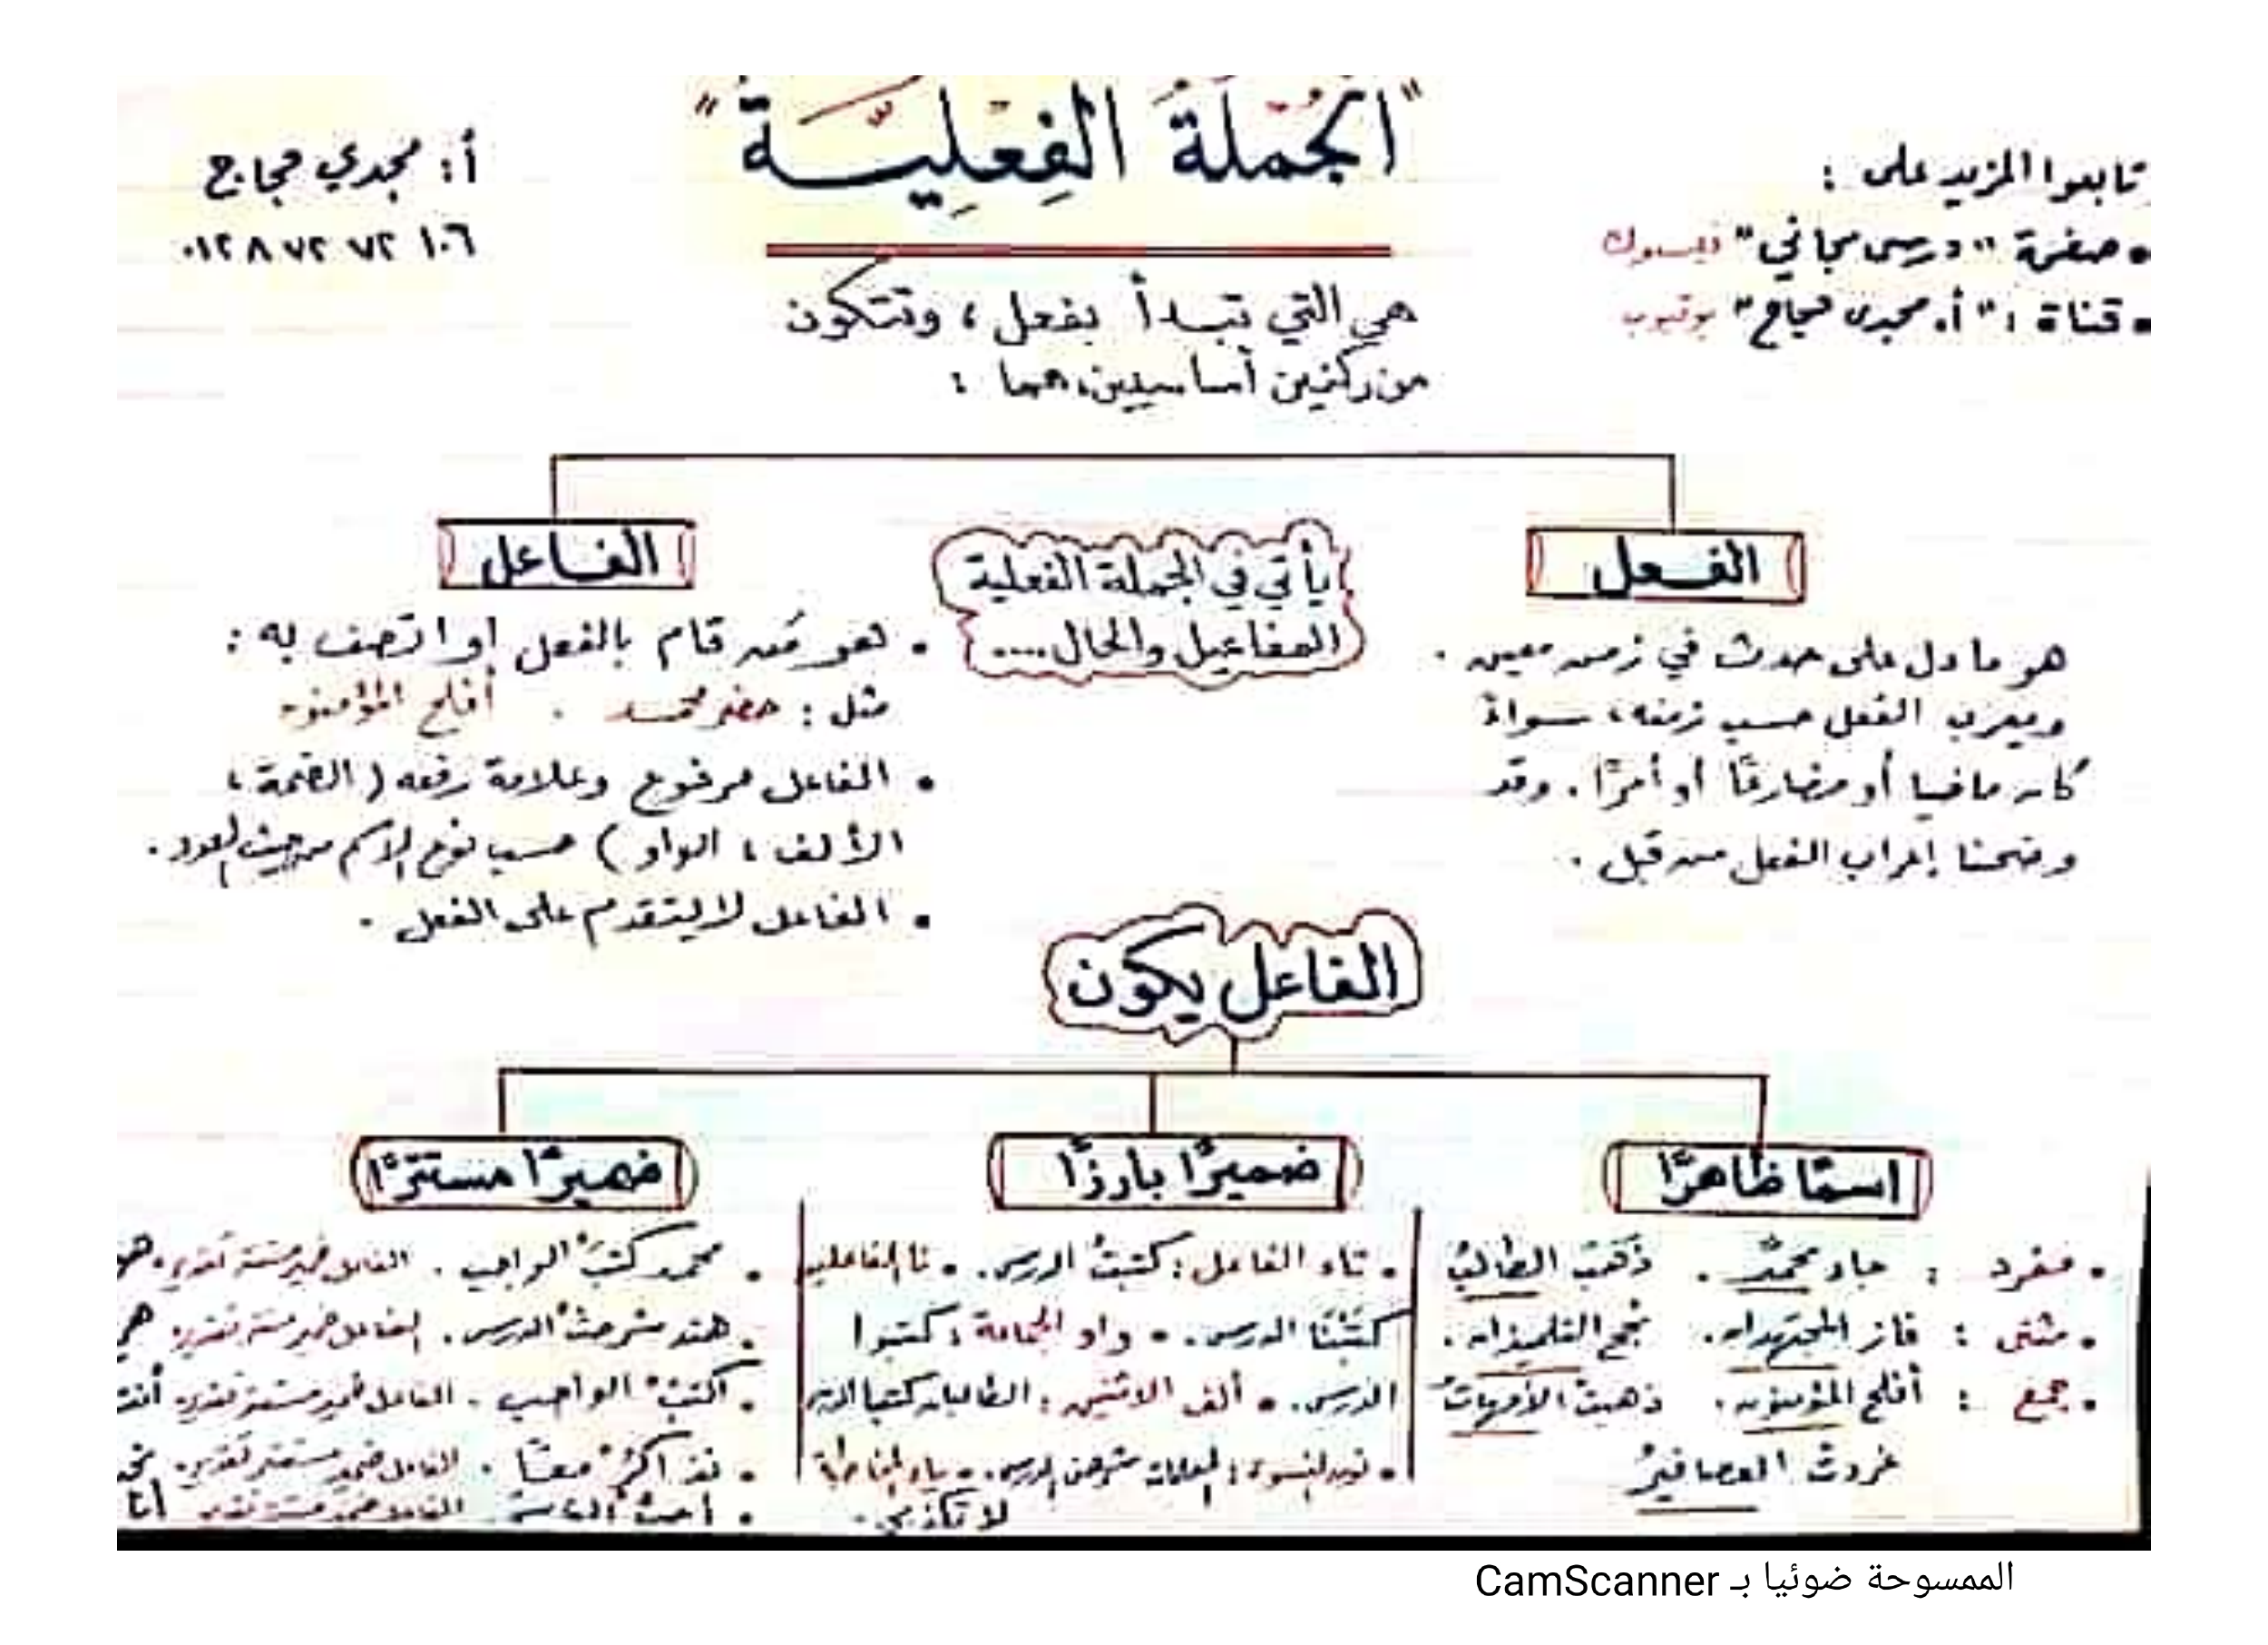 "الجُمْلَةُ الفِعْلِيَّةُ"
تابعوا المزيد على :
• صفحة "درس مجاني" فيسبوك
• قناة : "أ. مجدي حجاج" يوتيوب
أ: مجدي حجاج
٠١٢٨ ٧٢ ٧٢ ١٠٦
هي التي تبدأ بفعل، وتتكون
من ركنين أساسيين، هما :
الفعل
هو ما دل على حدث في زمن معين .
ويعرب الفعل حسب زمنه، سواءً
كان ماضيا أو مضارعًا أو أمرًا . وقد
وضحنا إعراب الفعل من قبل .
يأتي في الجملة الفعلية
المفاعيل والحال....
الفاعل
• هو مَن قام بالفعل أو اتصف به :
مثل : حضر محمد . أفلح المؤمنون
• الفاعل مرفوع وعلامة رفعه ( الضمة ،
الألف ، الواو ) حسب نوع الاسم من حيث العدد .
• الفاعل لا يتقدم على الفعل .
الفاعل يكون
اسمًا ظاهرًا
• مفرد : جاء محمدٌ . ذهبَ الطالبُ
• مثنى : فاز المجتهدان. نجح التلميذان .
• جمع : أفلح المؤمنون. ذهبتْ الأمهاتُ
غردتْ العصافيرُ
ضميرًا بارزًا
• تاء الفاعل : كتبتُ الدرس. • نا الفاعلين
كتبْنَا الدرس. • واو الجماعة : كتبوا
الدرس. • ألف الاثنين : الطالبان كتبا الدر
• نون النسوة : المعلمات شرحن الدرس. • ياء المخاطبة
لا تكذبي.
ضميرًا مستترًا
• محمد كتبَ الواجب . الفاعل ضمير مستتر تقديره هو
• هند شرحتْ الدرس. الفاعل ضمير مستتر تقديره هي
• اكتبْ الواجب . الفاعل ضمير مستتر تقديره أنت
• نذاكرُ معًا . الفاعل ضمير مستتر تقديره نحن
• أحبُّ الفاعل ضمير مستتر تقديره أنا
الممسوحة ضوئيا بـ CamScanner